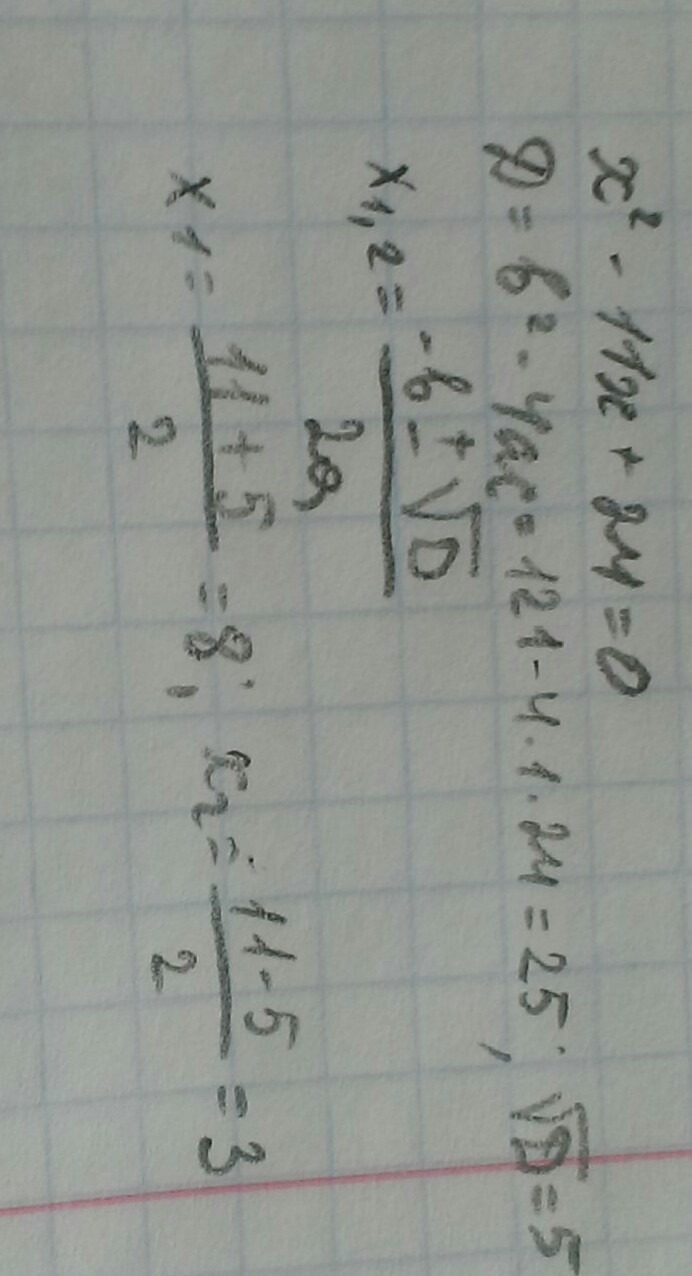 x² - 11x + 24 = 0
D = b² - 4ac = 121 - 4 · 1 · 24 = 25; √D = 5
x1,2 = (-b ± √D) / 2a
x1 = (11 + 5) / 2 = 8; x2 = (11 - 5) / 2 = 3